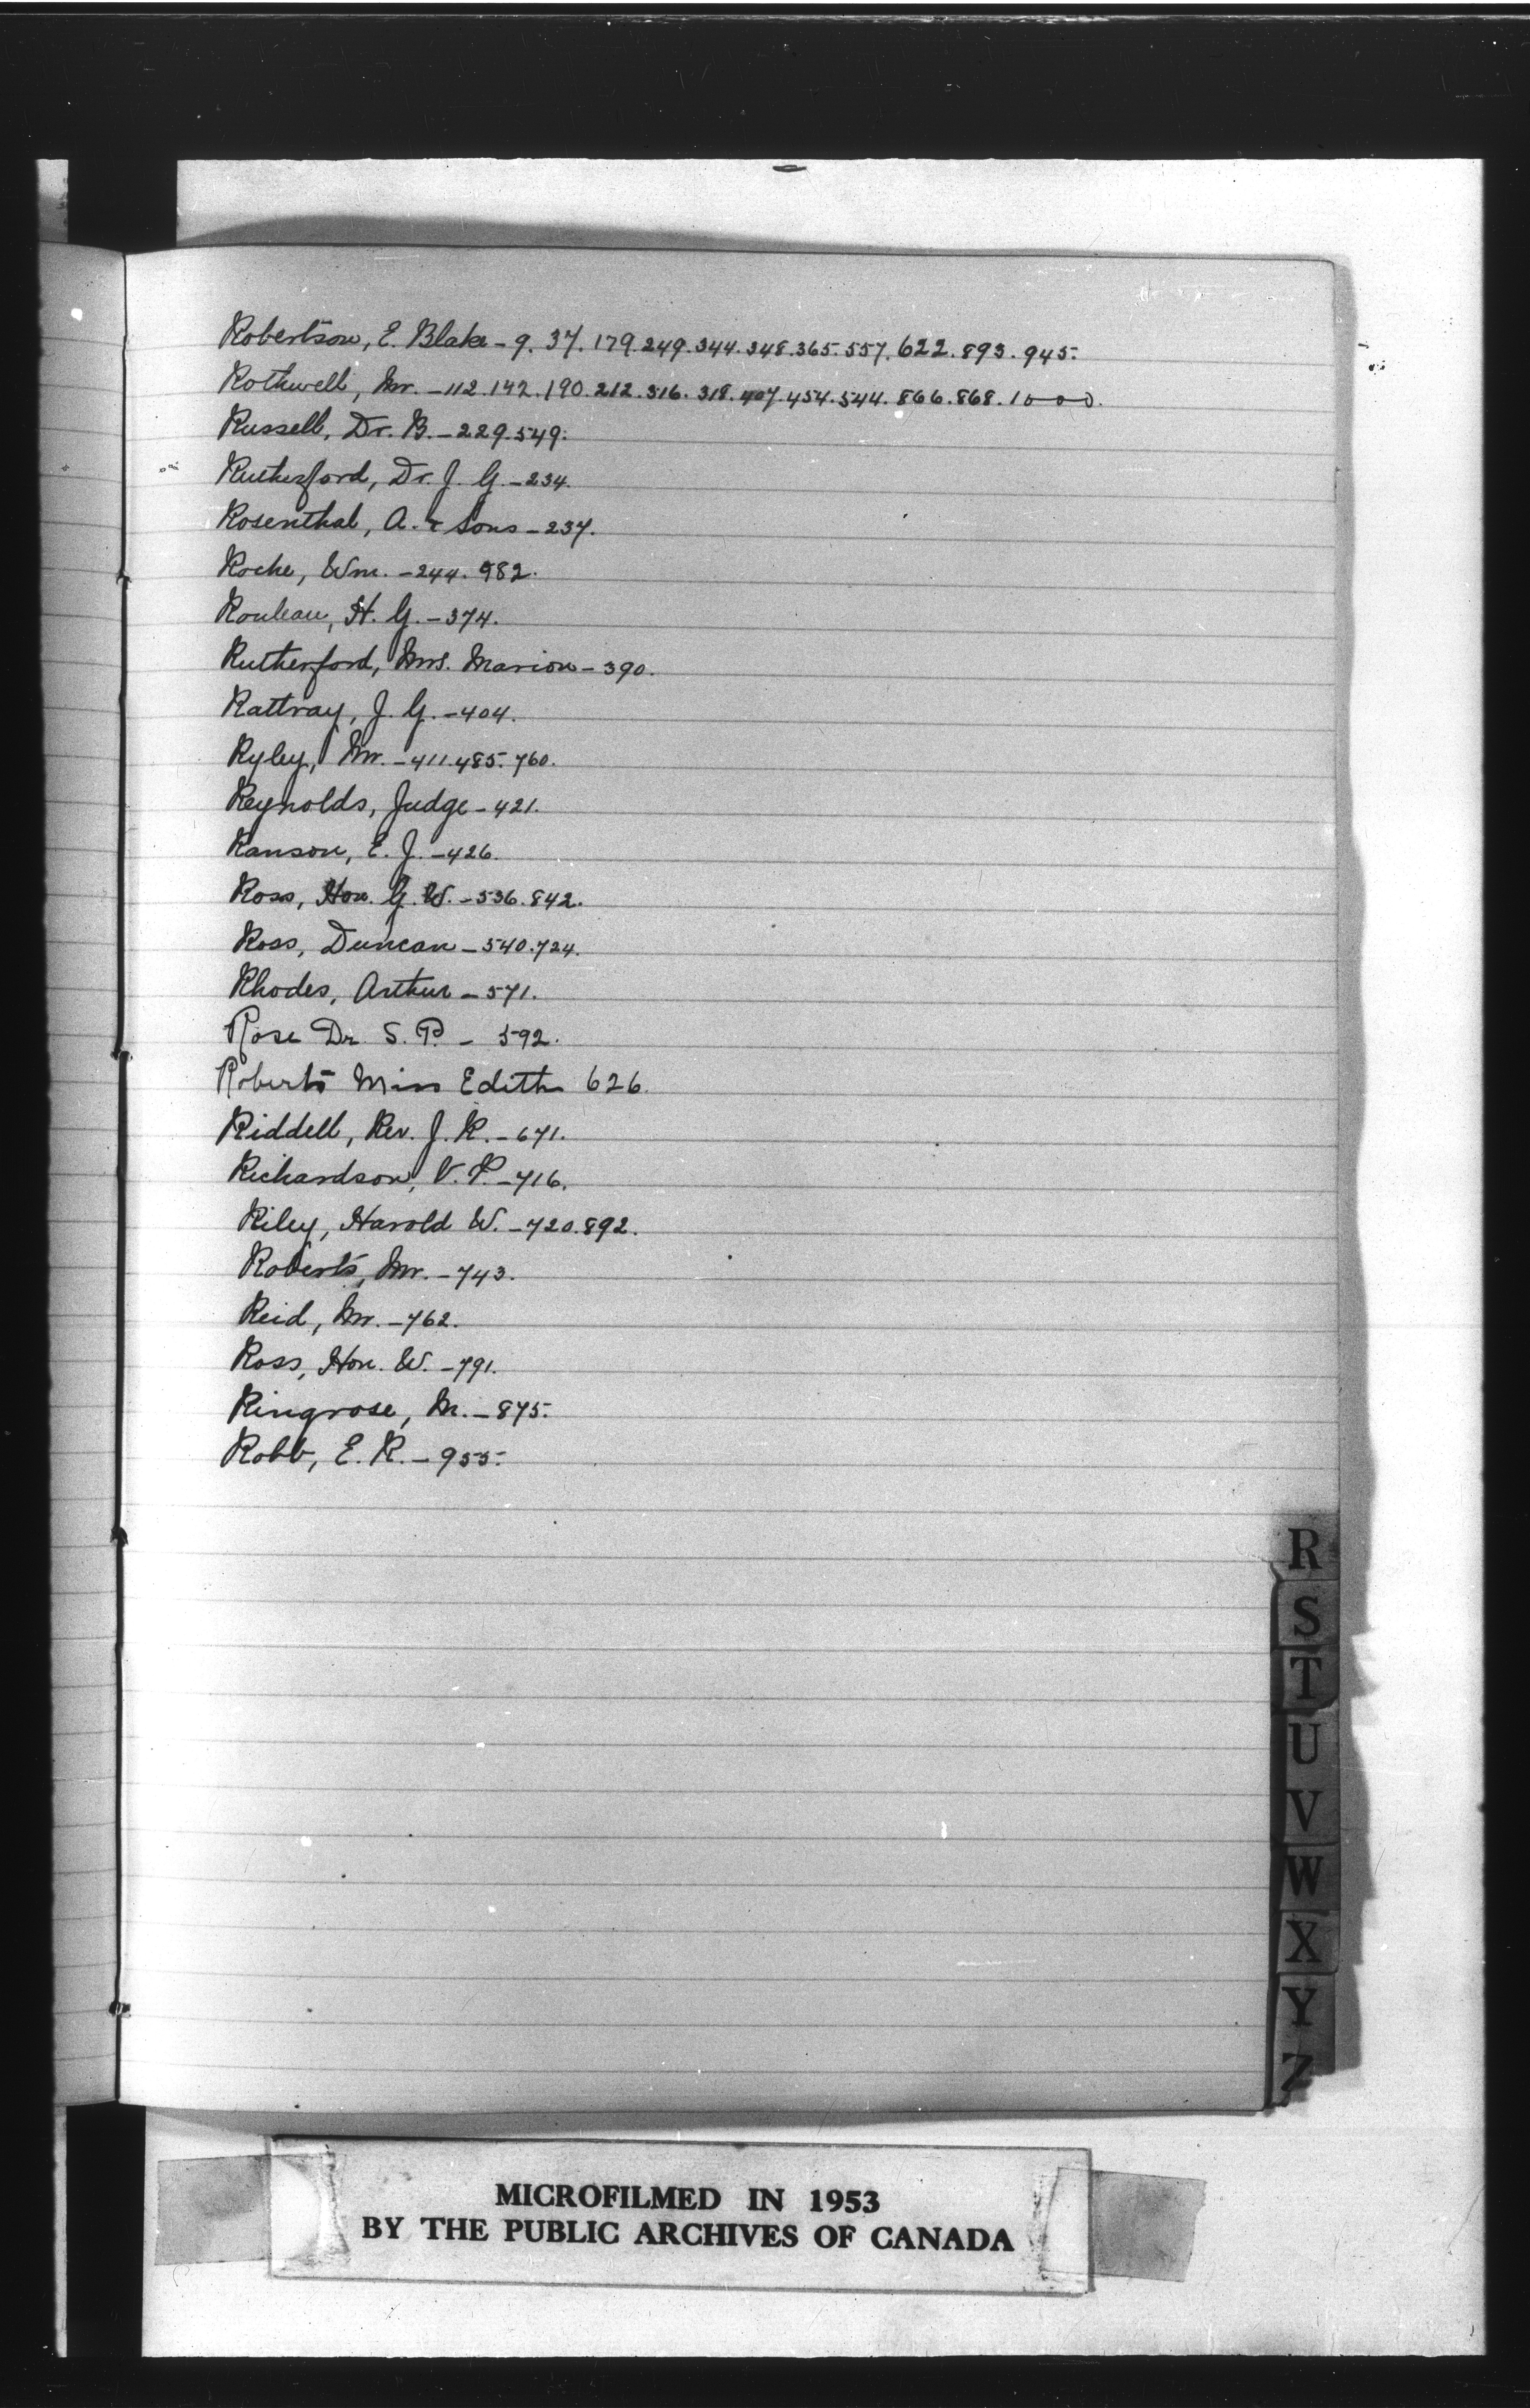 Robertson, E. Blake - 9. 37. 179. 249. 344. 348. 365. 557. 622. 893. 945.
Rothwell, Mr. - 112. 142. 190. 212. 316. 318. 407. 454. 544. 866. 868. 1000.
Russell, Dr. B. - 229. 549.
Rutherford, Dr. J. G. - 234.
Rosenthal, A. & Sons - 237.
Roche, Wm. - 244. 982.
Rouleau, H. G. - 374.
Rutherford, Mrs. Marion - 390.
Rattray, J. G. - 404.
Ryley, Mr. - 411. 485. 760.
Reynolds, Judge - 421.
Ranson, E. J. - 426.
Ross, Hon. G. W. - 536. 842.
Ross, Duncan - 540. 724.
Rhodes, Arthur - 571.
Rose Dr. S. P. - 592.
Roberts Miss Edith 626.
Riddell, Rev. J. R. - 671.
Richardson, V. P. - 716.
Riley, Harold W. - 720. 892.
Roberts, Mr. - 743.
Reid, Mr. - 762.
Ross, Hon. W. - 791.
Ringrose, M. - 875.
Robb, E. R. - 955.
R
S
T
U
V
W
X
Y
Z
MICROFILMED IN 1953
BY THE PUBLIC ARCHIVES OF CANADA